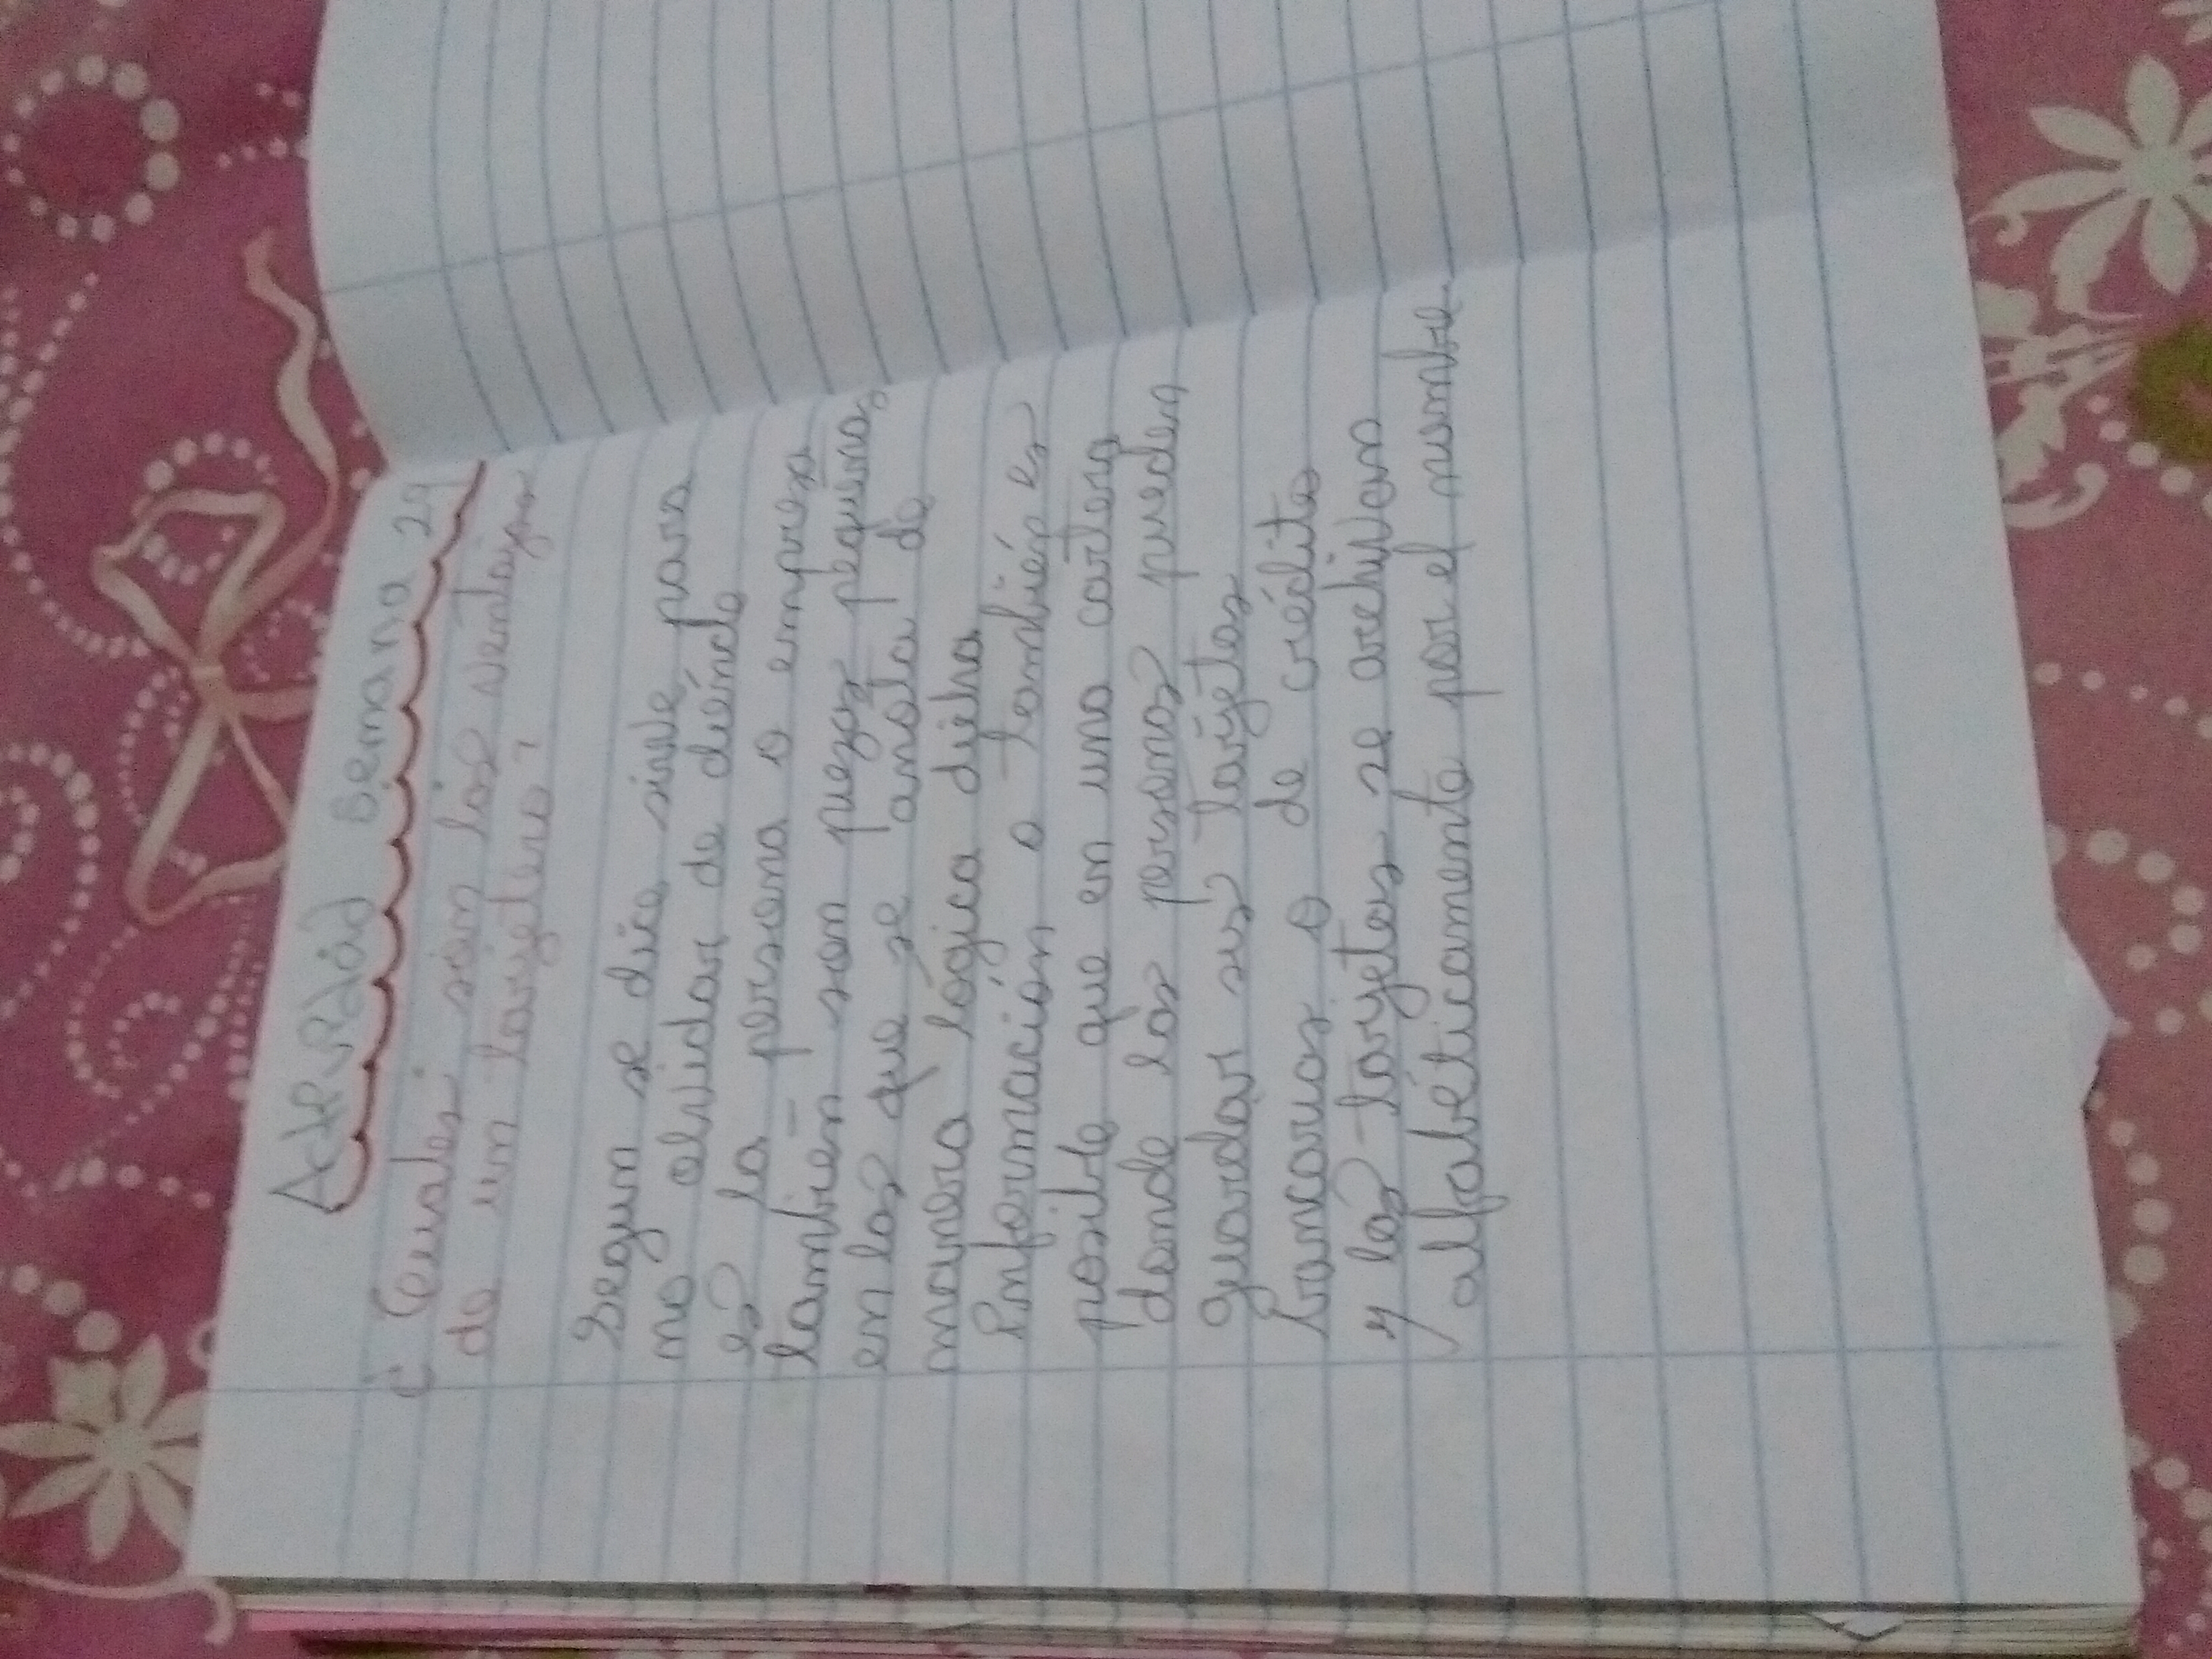 Actividad Semana 29
¿Cuales són las ventajas
de un tarjetero?
Segun se dice sirve para
no olvidar de dónde
es la persona o empresa
tambien son piezas pequeñas
en las que se anota de
manera lógica dicha
información o también es
posible que en una cartera
donde las personas pueden
guardar sus tarjetas
bancarias o de crédito
y las tarjetas se archivan
alfabéticamente por el nombre.